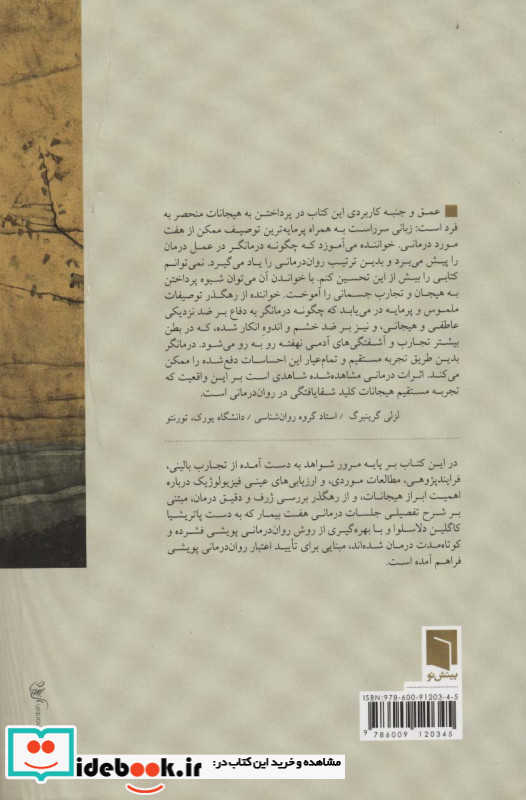 عمق و جنبه کاربردی این کتاب در پرداختن به هیجانات منحصر به
فرد است: زبانی سرراست به همراه پرمایه‌ترین توصیف ممکن از هفت
مورد درمانی. خواننده می‌آموزد که چگونه درمانگر در عمل درمان
را پیش می‌برد و بدین ترتیب روان‌درمانی را یاد می‌گیرد. نمی‌توانم
کتابی را بیش از این تحسین کنم. با خواندن آن می‌توان شیوه پرداختن
به هیجان و تجارب جسمانی را آموخت. خواننده از رهگذر توصیفات
ملموس و پرمایه در می‌یابد که چگونه درمانگر به دفاع بر ضد نزدیکی
عاطفی و هیجانی، و نیز بر ضد خشم و اندوهِ انکار شده، که در بطن
بیشتر تجارب و آشفتگی‌های آدمی نهفته رو به رو می‌شود. درمانگر
بدین طریق تجربه مستقیم و تمام‌عیار این احساسات دفع‌شده را ممکن
می‌کند. اثرات درمانی مشاهده‌شده شاهدی است بر این واقعیت که
تجربه مستقیم هیجانات کلید شفایافتگی در روان‌درمانی است.
لزلی گرینبرگ / استاد گروه روان‌شناسی / دانشگاه یورک، تورنتو
در این کتاب بر پایه مرور شواهد به دست آمده از تجارب بالینی،
فرایندپژوهی، مطالعات موردی، و ارزیابی‌های عینی فیزیولوژیک درباره
اهمیت ابراز هیجانات، و از رهگذر بررسی ژرف و دقیق درمان، مبتنی
بر شرح تفصیلی جلسات درمانی هفت بیمار که به دست پاتریشیا
کاگلین دلاسلوا و با بهره‌گیری از روش روان‌درمانی پویشی فشرده و
کوتاه‌مدت درمان شده‌اند، مبنایی برای تأیید اعتبار روان‌درمانی پویشی
فراهم آمده است.
بینش نو
ISBN: 978-600-91203-4-5
9 786009 120345
idebook.ir
مشاهده و خرید این کتاب در: